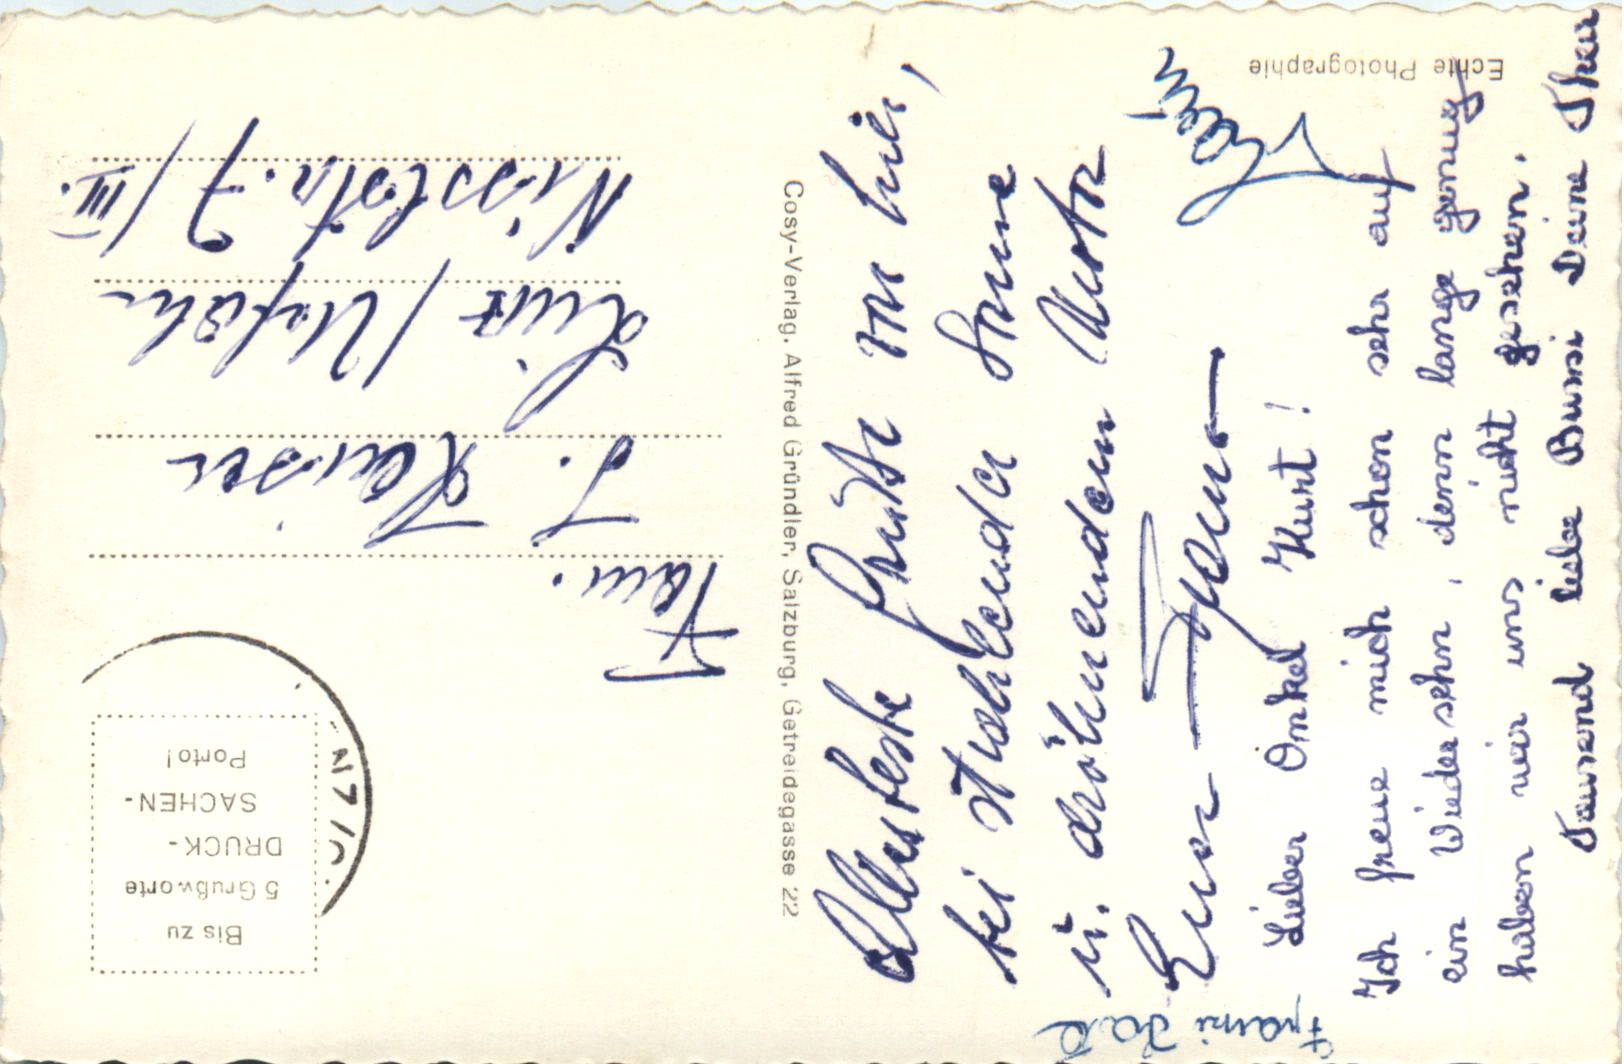 Echte Photographie
Allerbeste Grüße von hier,
bei strahlender Sonne
u. dröhnendem Motor
Euer
Lieber Onkel Kurt!
Ich freue mich schon sehr auf
ein Wiedersehn, denn lange genug
haben wir uns nicht gesehen.
Tausend liebe Bussi Deine
Franzi
Cosy-Verlag, Alfred Gründler, Salzburg, Getreidegasse 22
Bis zu
5 Grußworte
DRUCK-
SACHEN-
Porto!
Fam.
Linz / Urfahr
7/III.